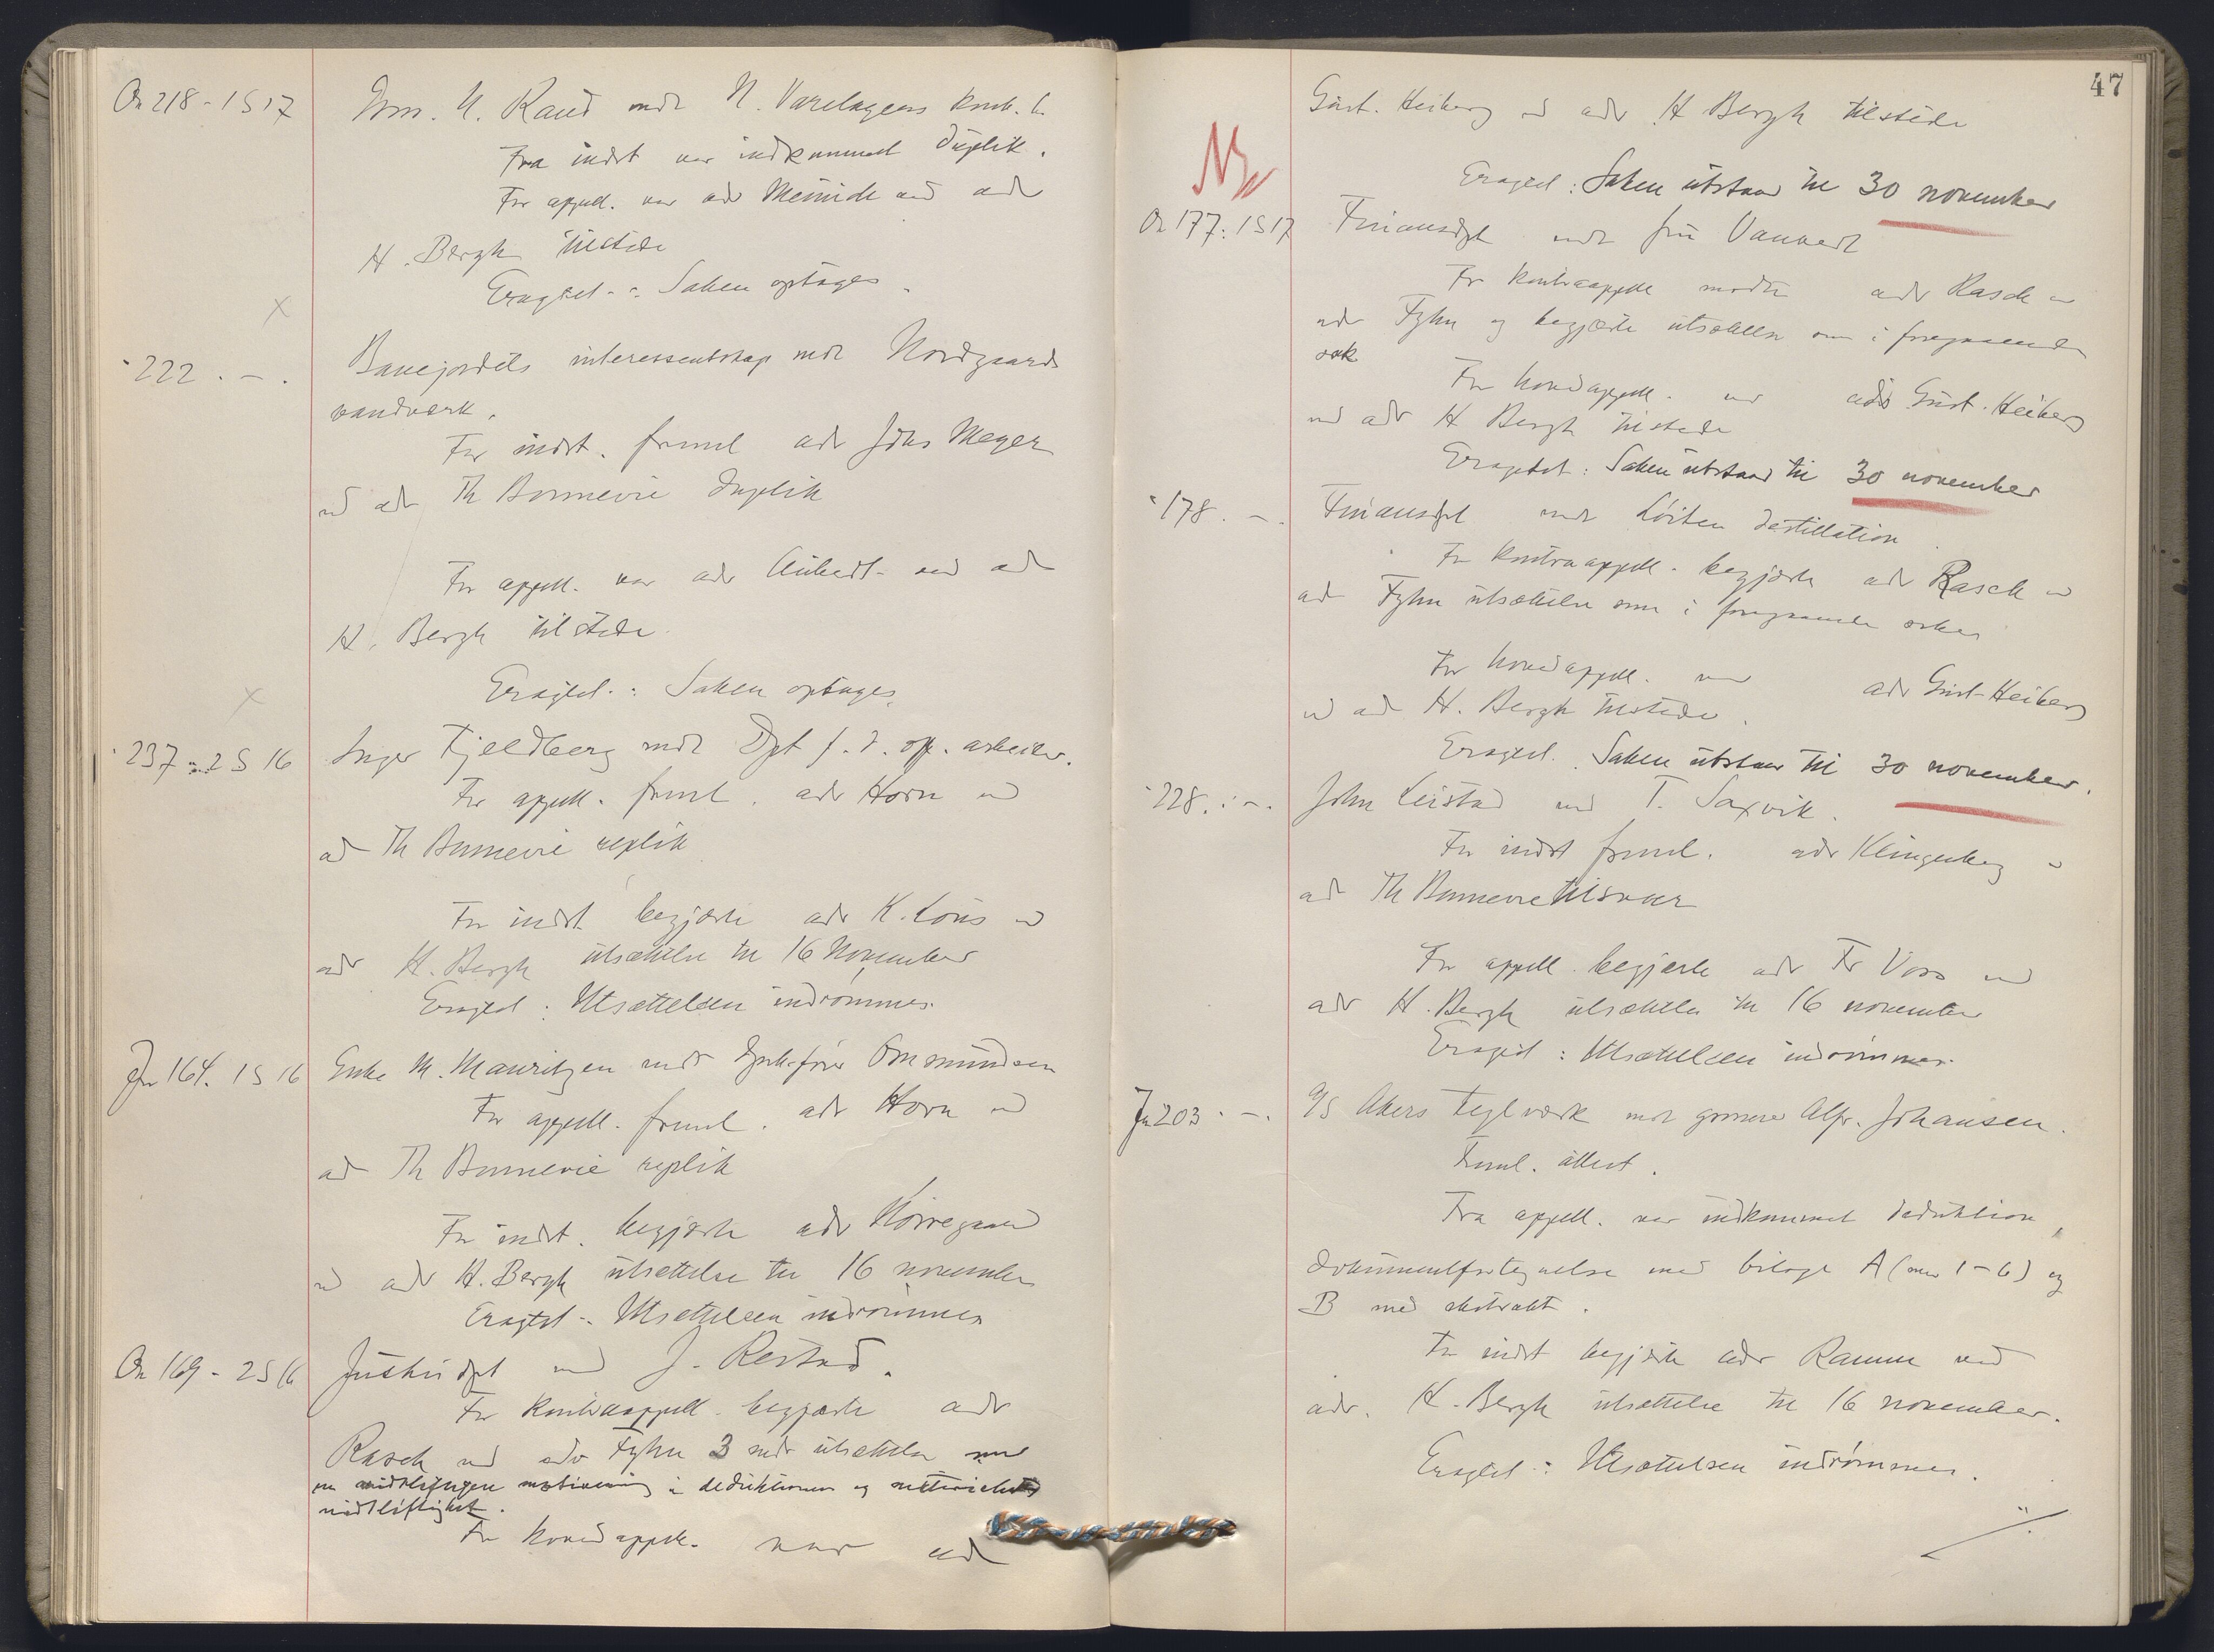 On 218 - 1 S 17
Em. N. Raud mot N. Varelagens konk. bo
Fra indst var indkommet duplik.
For appell. var adv Meinich ved adv
H. Bergh tilstede
Eragtet: Saken optages.
X
" 222 . - .
Banejordets interessentskap mot Nordgaards
vandverk.
For indst. freml adv Johs Meyer
ved adv Th Bonnevie duplik
For appell. var adv Aubert ved adv
H. Bergh tilstede.
Eragtet: Saken optages.
X
" 237 - 2 S 16
Inger Fjeldberg mot Dpt f. d. off. arbeider.
For appell. freml. adv Horn ved
adv Th Bonnevie replik
For indst begjærte adv K. Lous ved
adv H. Bergh utsættelse til 16 November
Eragtet: Utsættelsen indrømmes.
Jn 164. 1 S 16
Enke M. Mauritzen mot Ommundsen
For appell. freml. adv Horn ved
adv Th Bonnevie replik
For indst. begjærte adv Nørregaard
ved adv H. Bergh utsættelse til 16 november
Eragtet: Utsættelsen indrømmes
On 169 - 2 S 16
Justisdpt mot J. Restad.
For kontraappell. begjærte adv
Rasch ved adv Fyhn 3 mdr utsættelse
motivering i deduktionen og
For hovedappell. var adv
47
Gust. Heiberg ved adv H Bergh tilstede
Eragtet: Saken utstaar til 30 november
NB
On 177. 1 S 17
Finansdpt mot fru Vauvert
For kontraappell mødte adv Rasch ved
adv Fyhn og begjærte utsættelse som i foregaaende
sak
For hovedappell. var adv Gust. Heiberg
ved adv H Bergh tilstede
Eragtet: Saken utstaar til 30 november
" 178. - .
Finansdpt mot Løiten destillation
For kontraappell. begjærte adv Rasch ved
adv Fyhn utsættelse som i foregaaende saker
For hovedappell. var adv Gust. Heiberg
ved adv H. Bergh tilstede.
Eragtet: Saken utstaar til 30 november.
" 228. : - .
John Leistad mot T. Saxvik.
For indst freml. adv Klingenberg ved
adv Th Bonnevie tilsvar
For appell. begjærte adv Fr Voss ved
adv H. Bergh utsættelse til 16 november
Eragtet: Utsættelsen indrømmes.
Jn 203 . - .
A/S Akers teglverk mot Alfr. Johansen.
Freml. attest.
Fra appell. var indkommet deduktion,
dokumentfortegnelse med bilage A (nr 1-6) og
B med ekstrakt.
For indst begjærte adv Ramm ved
adv. H. Bergh utsættelse til 16 november.
Eragtet: Utsættelsen indrømmes.